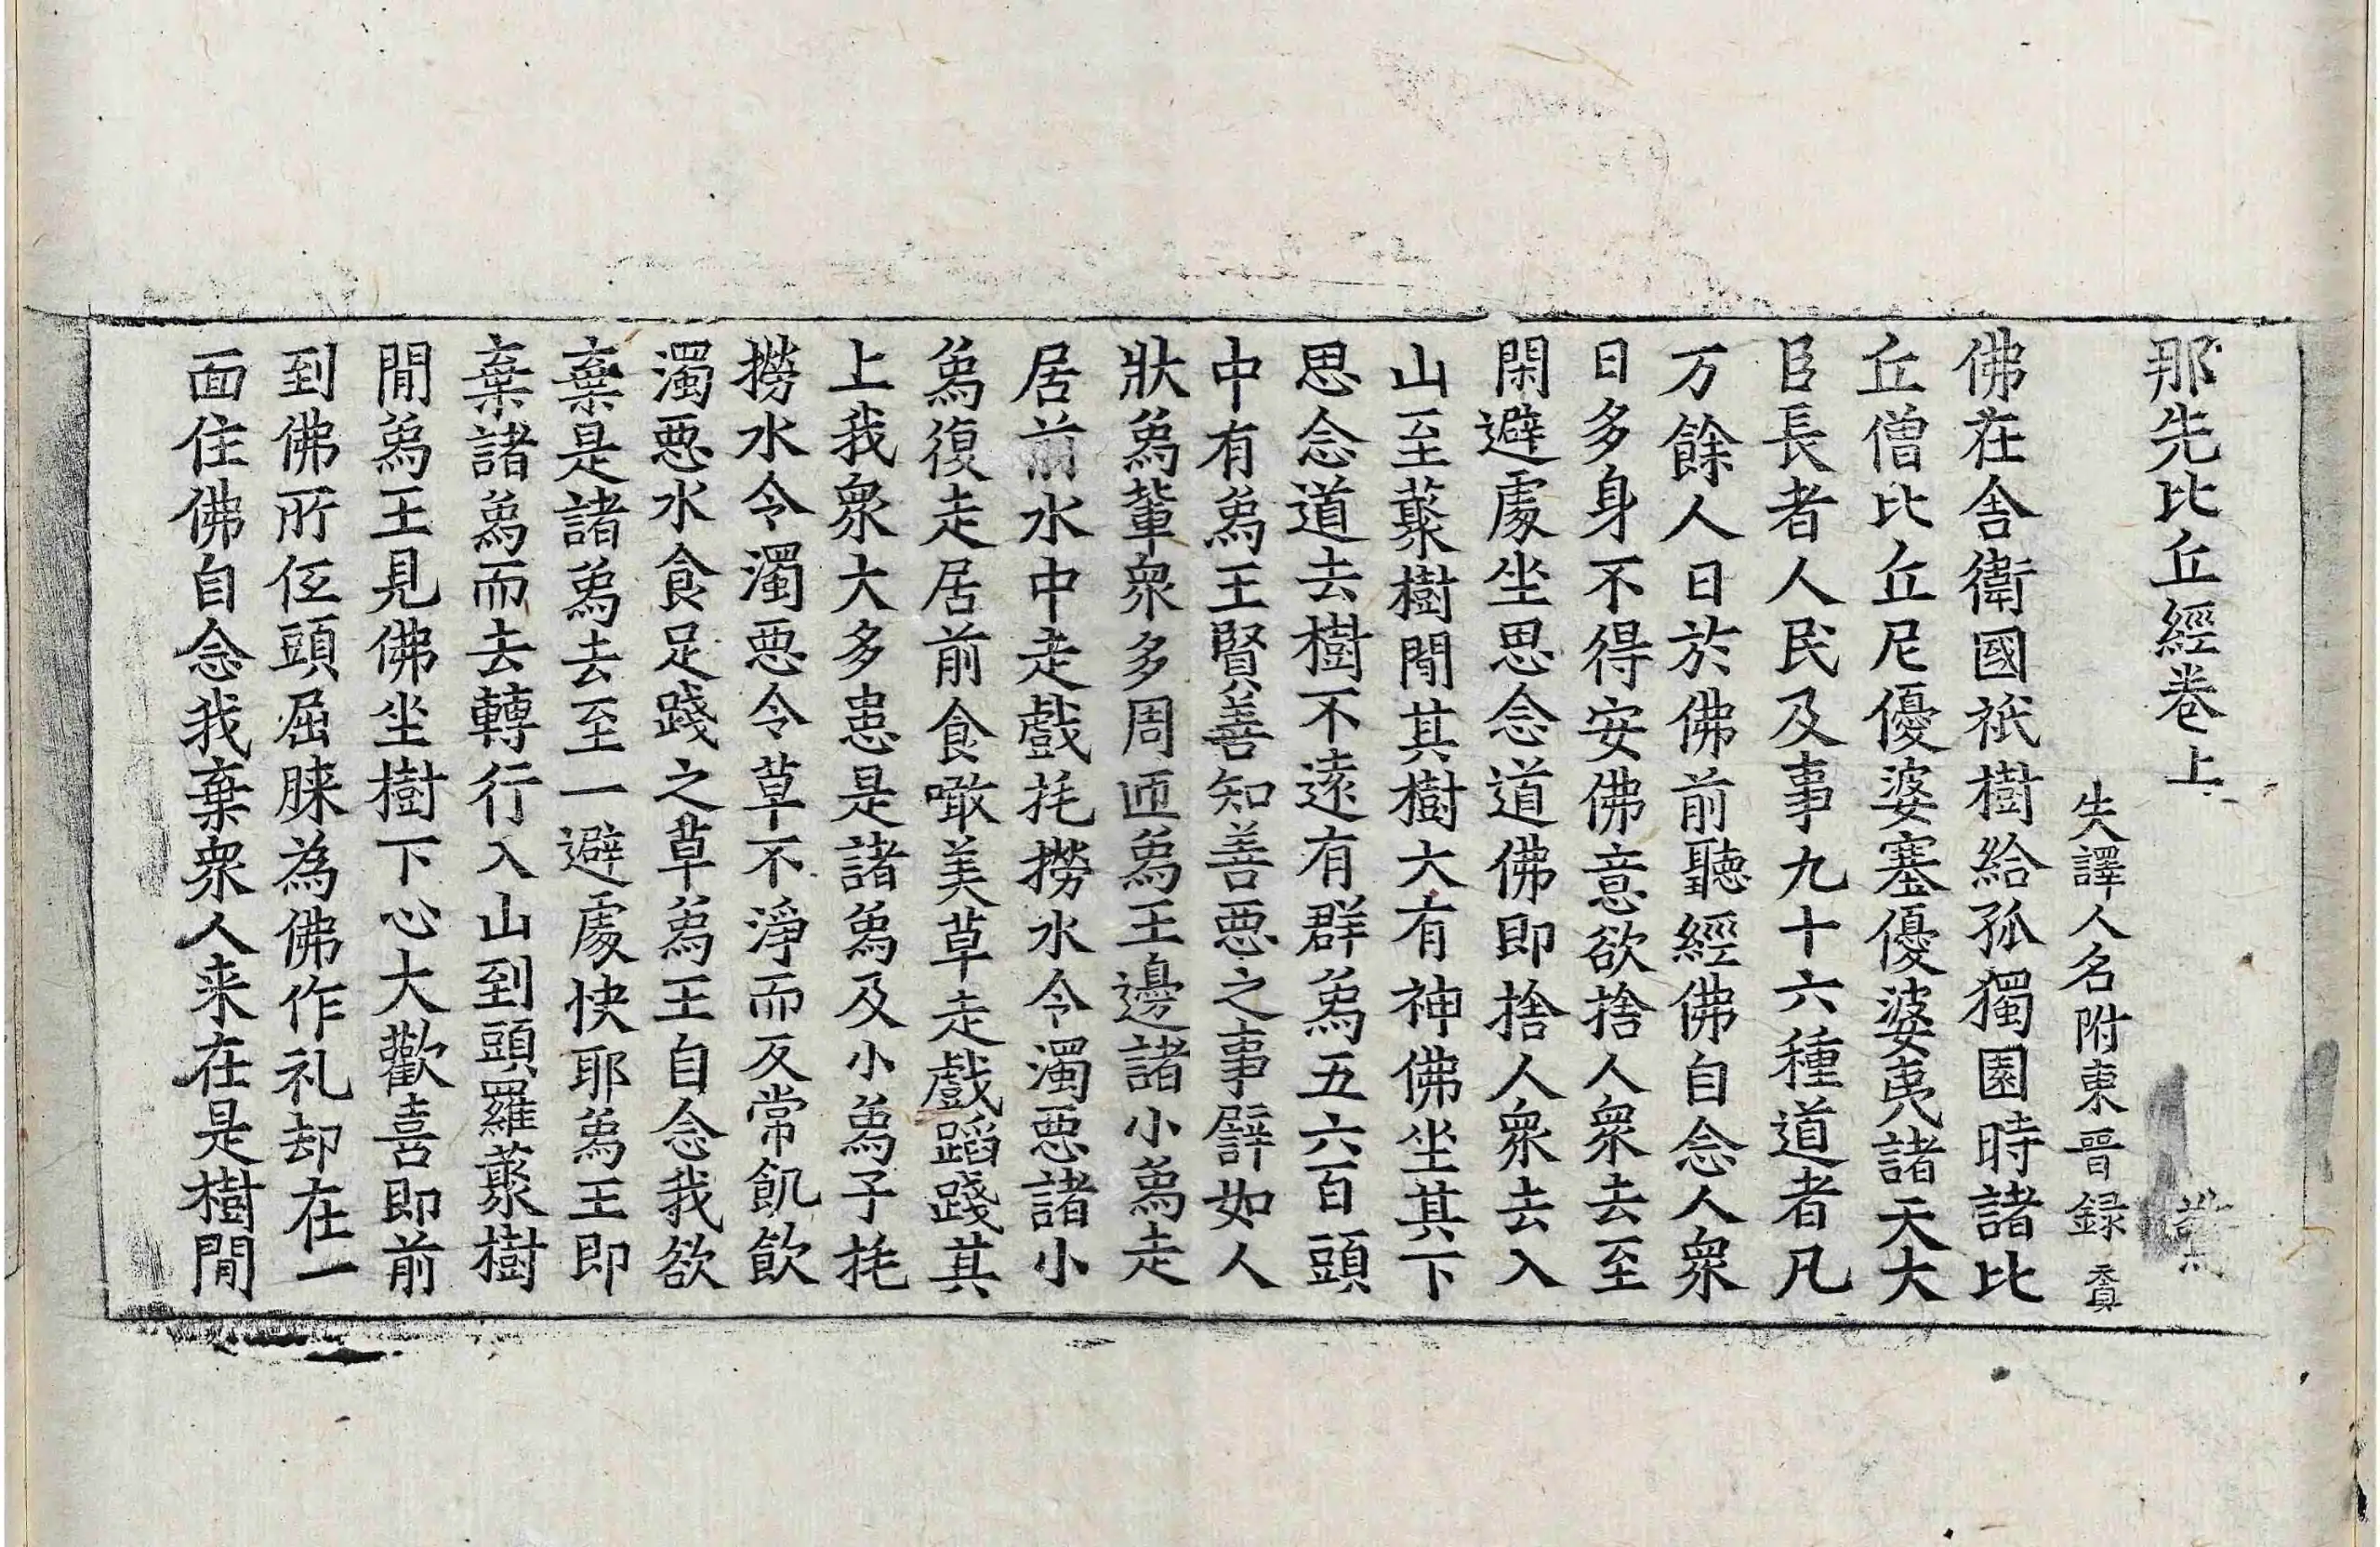 那先比丘經卷上
驚
失譯人名附東晉録
佛在舍衛國祇樹給孤獨園時諸比
丘僧比丘尼優婆塞優婆夷諸天大
臣長者人民及事九十六種道者凡
万餘人日於佛前聽經佛自念人衆
日多身不得安佛意欲捨人衆去至
閑避處坐思念道佛即捨人衆去入
山至藂樹閒其樹大有神佛坐其下
思念道去樹不遠有群象五六百頭
中有象王賢善知善惡之事譬如人
狀象輩衆多周匝象王邊諸小象走
居前水中走戲撓撈水令濁惡諸小
象復走居前食噉美草走戲蹈踐其
上我衆大多患是諸象及小象子撓
撈水令濁惡令草不淨而反常飢飲
濁惡水食足踐之草象王自念我欲
棄是諸象去至一避處快耶象王即
棄諸象而去轉行入山到頭羅藂樹
閒象王見佛坐樹下心大歡喜即前
到佛所低頭屈膝為佛作礼却在一
面住佛自念我棄衆人来在是樹閒